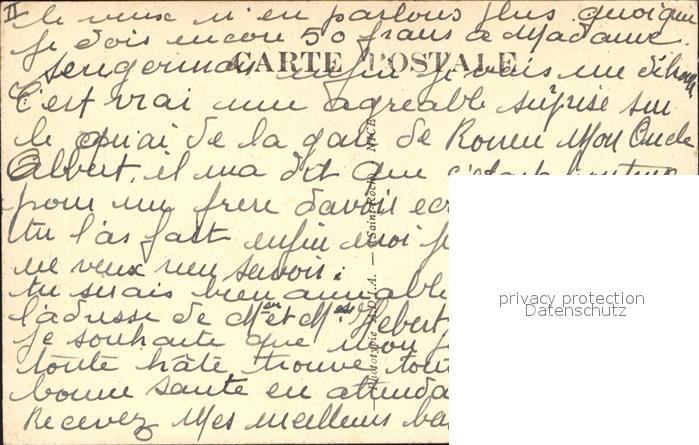 II
le veux n'en parlons plus quoique
je dois encore 50 frans a Madame
CARTE POSTALE
enfin je vais me
C'est vrai une agreable suprise sur
le quai de la gare de Rouen Mon Oncle
Albert, il ma dit que c'etait
pour un frere davoir
tu l'as fait enfin moi je
ne veux rien savoir.
tu serais bien aimable
l'adresse de Mr et Mes Hebert
je souhaite que mon
toute hâte trouve tout
bonne sante en attenda
Recevez Mes meilleurs ba
Phototypie — Saint-Roch — NICE
privacy protection
Datenschutz